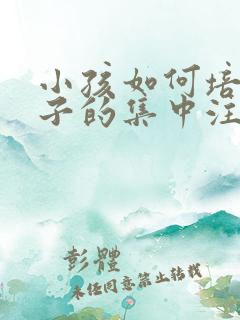 小孩如何培
子的集中注
彭體
未经同意禁止转载